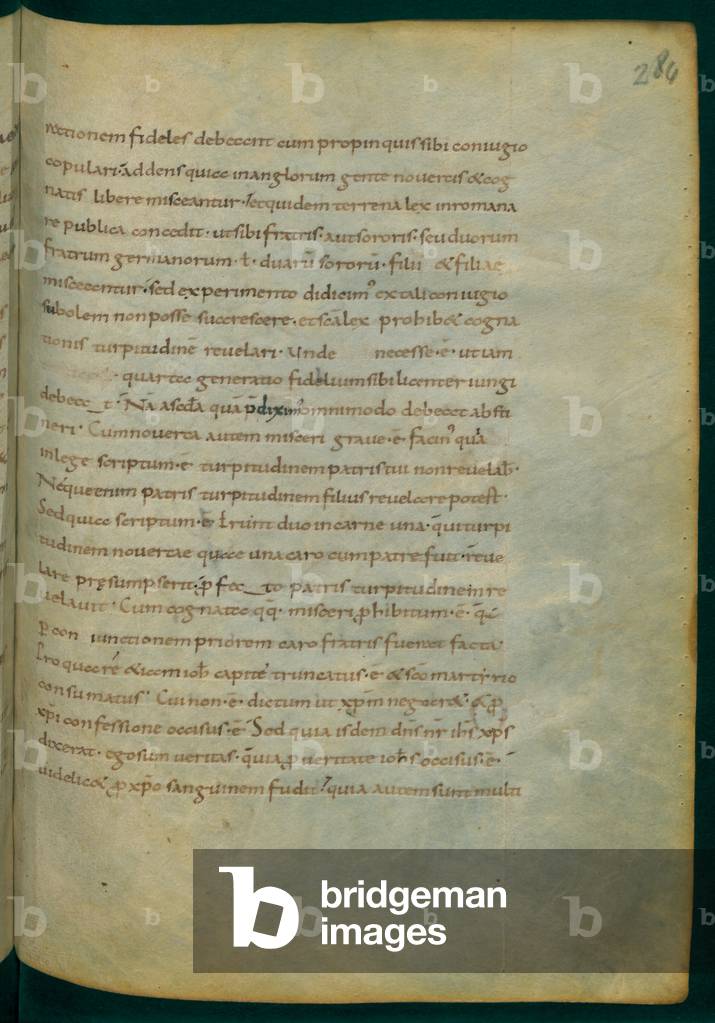 284
rectionem fideles debeant cum propinquis sibi coniugio
copulari · addens quia in anglorum gente nouercis & cog
natis libere misceantur · et quidem terrena lex in romana
re publica concedit · ut sibi fratris · aut sororis · seu duorum
fratrum germanorum · ł · duarū sororū · filii & filiae
misceantur · sed experimento didicim᾽ ex tali coniugio
subolem non posse succrescere · et sca lex prohib& cogna
tionis turpitudinē reuelari · Unde necesse · ē · ut iam
quarta generatio fidelium sibi licenter iungi
debea_t · Nā ascda quā p̄diximᵒ omnimodo debeat absti
neri · Cum nouerca autem misceri graue · ē · facinᵒ quia
in lege scriptum · ē · turpitudinem patris tui non reuelab ·
Neque enim patris turpitudinem filius reuelare potest ·
Sed quia scriptum · ē · Erunt duo in carne una · qui turpi
tudinem nouercae quae una caro cum patre fuit · reue
lare pręsumpserit · ꝓfec_to patris turpitudinem re
uelauit · Cum cognata qq · misceri ꝓhibitum · ē · q̄a
ꝑ con iunctionem priorem caro fratris fuerat facta
Pro qua rē & iam ioh capite truncatus · ē · & sco martyrio
consumatus · Cui non · ē · dictum ut xp̄m negar& · & ꝓ
xp̄i confessione occisus · ē · Sed quia isdem dn̄s nr̄ ihs xp̄s
dixerat · ego sum ueritas · quia ꝓ ueritate iohs occisus · ē ·
uidelic& ꝓ xp̄o sanguinem fudit · quia autem sunt multi
bridgeman
images